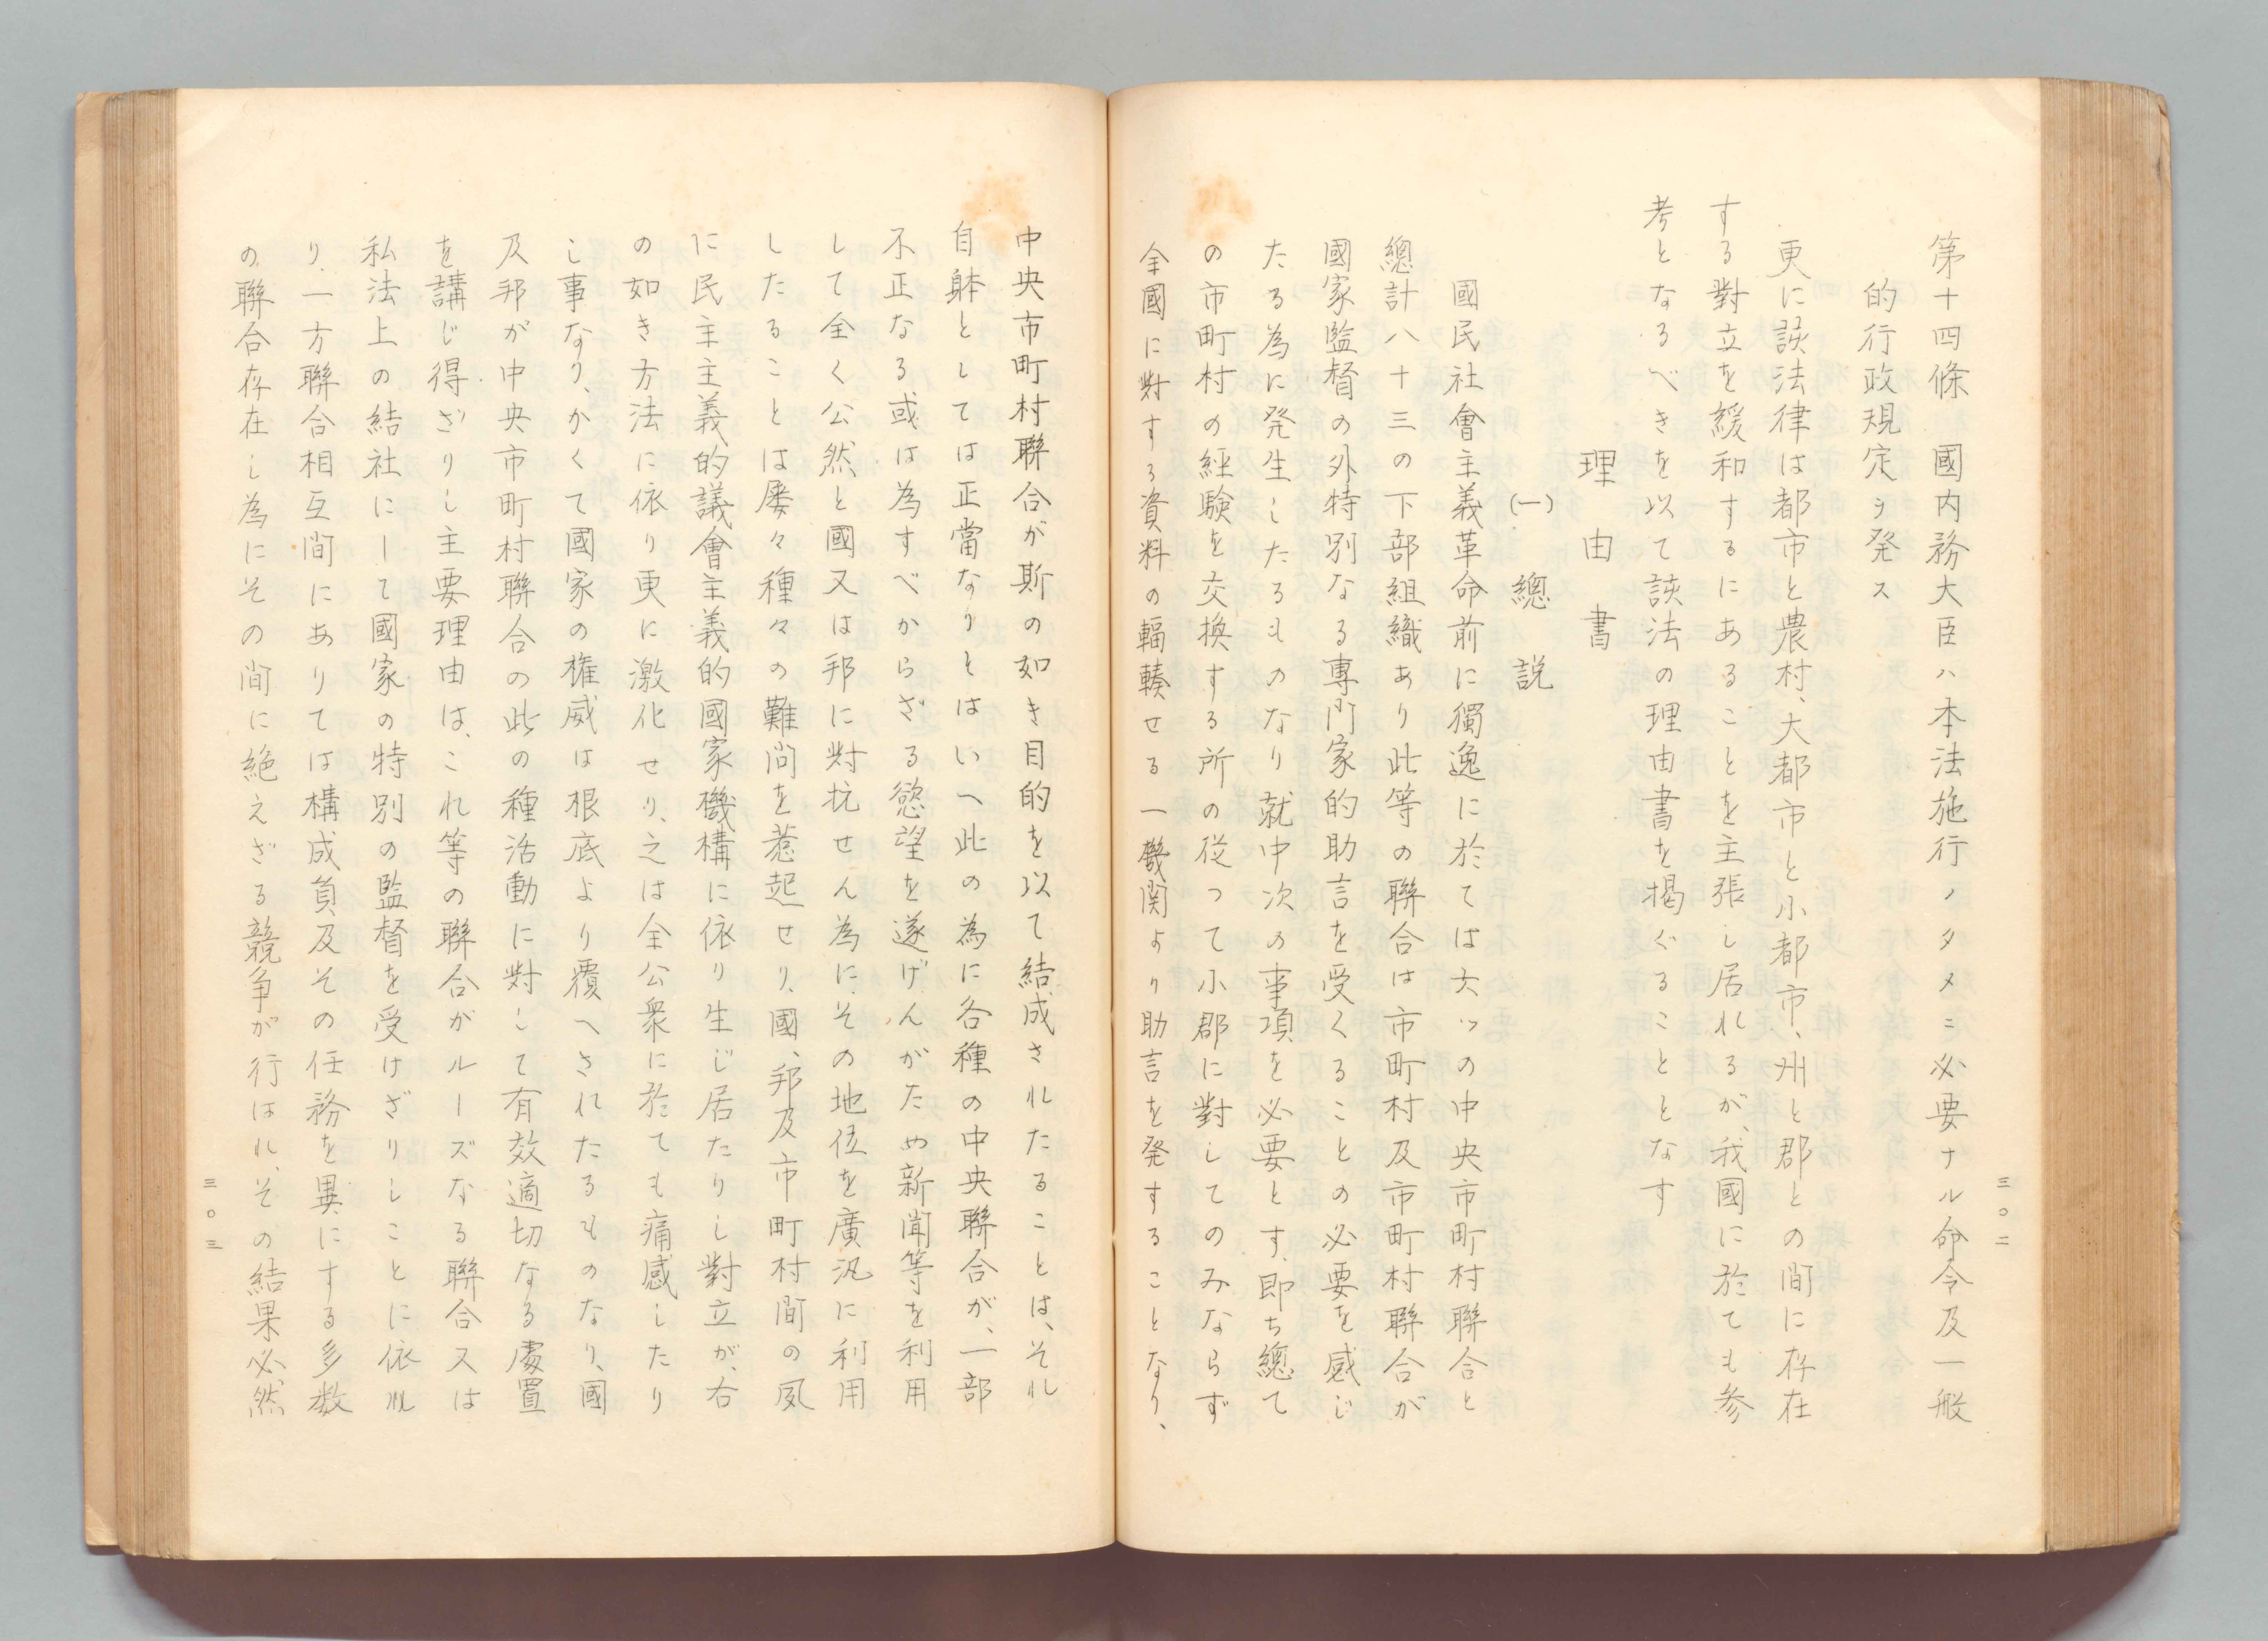 第十四條　國内務大臣ハ本法施行ノタメニ必要ナル命令及一般
的行政規定ヲ発ス
更に該法律は都市と農村、大都市と小都市、州と郡との間に存在
する對立を緩和するにあることを主張し居れるが、我國に於ても参
考となるべきを以て該法の理由書を掲ぐることとなす
理由書
(一)　總説
國民社會主義革命前に獨逸に於ては六ッの中央市町村聯合と
總計八十三の下部組織あり此等の聯合は市町村及市町村聯合が
國家監督の外特別なる專門家的助言を受くることの必要を感じ
たる為に発生したるものなり就中次の事項を必要とす、即ち總て
の市町村の経験を交換する所の従つて小郡に對してのみならず
全國に對する資料の輻輳せる一機関より助言を発することなり、
三〇二
中央市町村聯合が斯の如き目的を以て結成されたることは、それ
自躰としては正當なりとはいへ此の為に各種の中央聯合が、一部
不正なる或は為すべからざる慾望を遂げんがため新聞等を利用
して全く公然と國又は邦に對抗せん為にその地位を廣汎に利用
したることは屡々種々の難问を惹起せり、國、邦及市町村間の夙
に民主主義的議會主義的國家機構に依り生じ居たりし對立が、右
の如き方法に依り更に激化せり、之は全公衆に於ても痛感したり
し事なり、かくて國家の権威は根底より覆へされたるものなり、國
及邦が中央市町村聯合の此の種活動に對して有效適切なる處置
を講じ得ざりし主要理由は、これ等の聯合がルーズなる聯合又は
私法上の結社にして國家の特別の監督を受けざりしことに依れ
り、一方聯合相互間にありては構成員及その任務を異にする多数
の聯合存在し為にその間に絶えざる競争が行はれ、その結果必然
三〇三